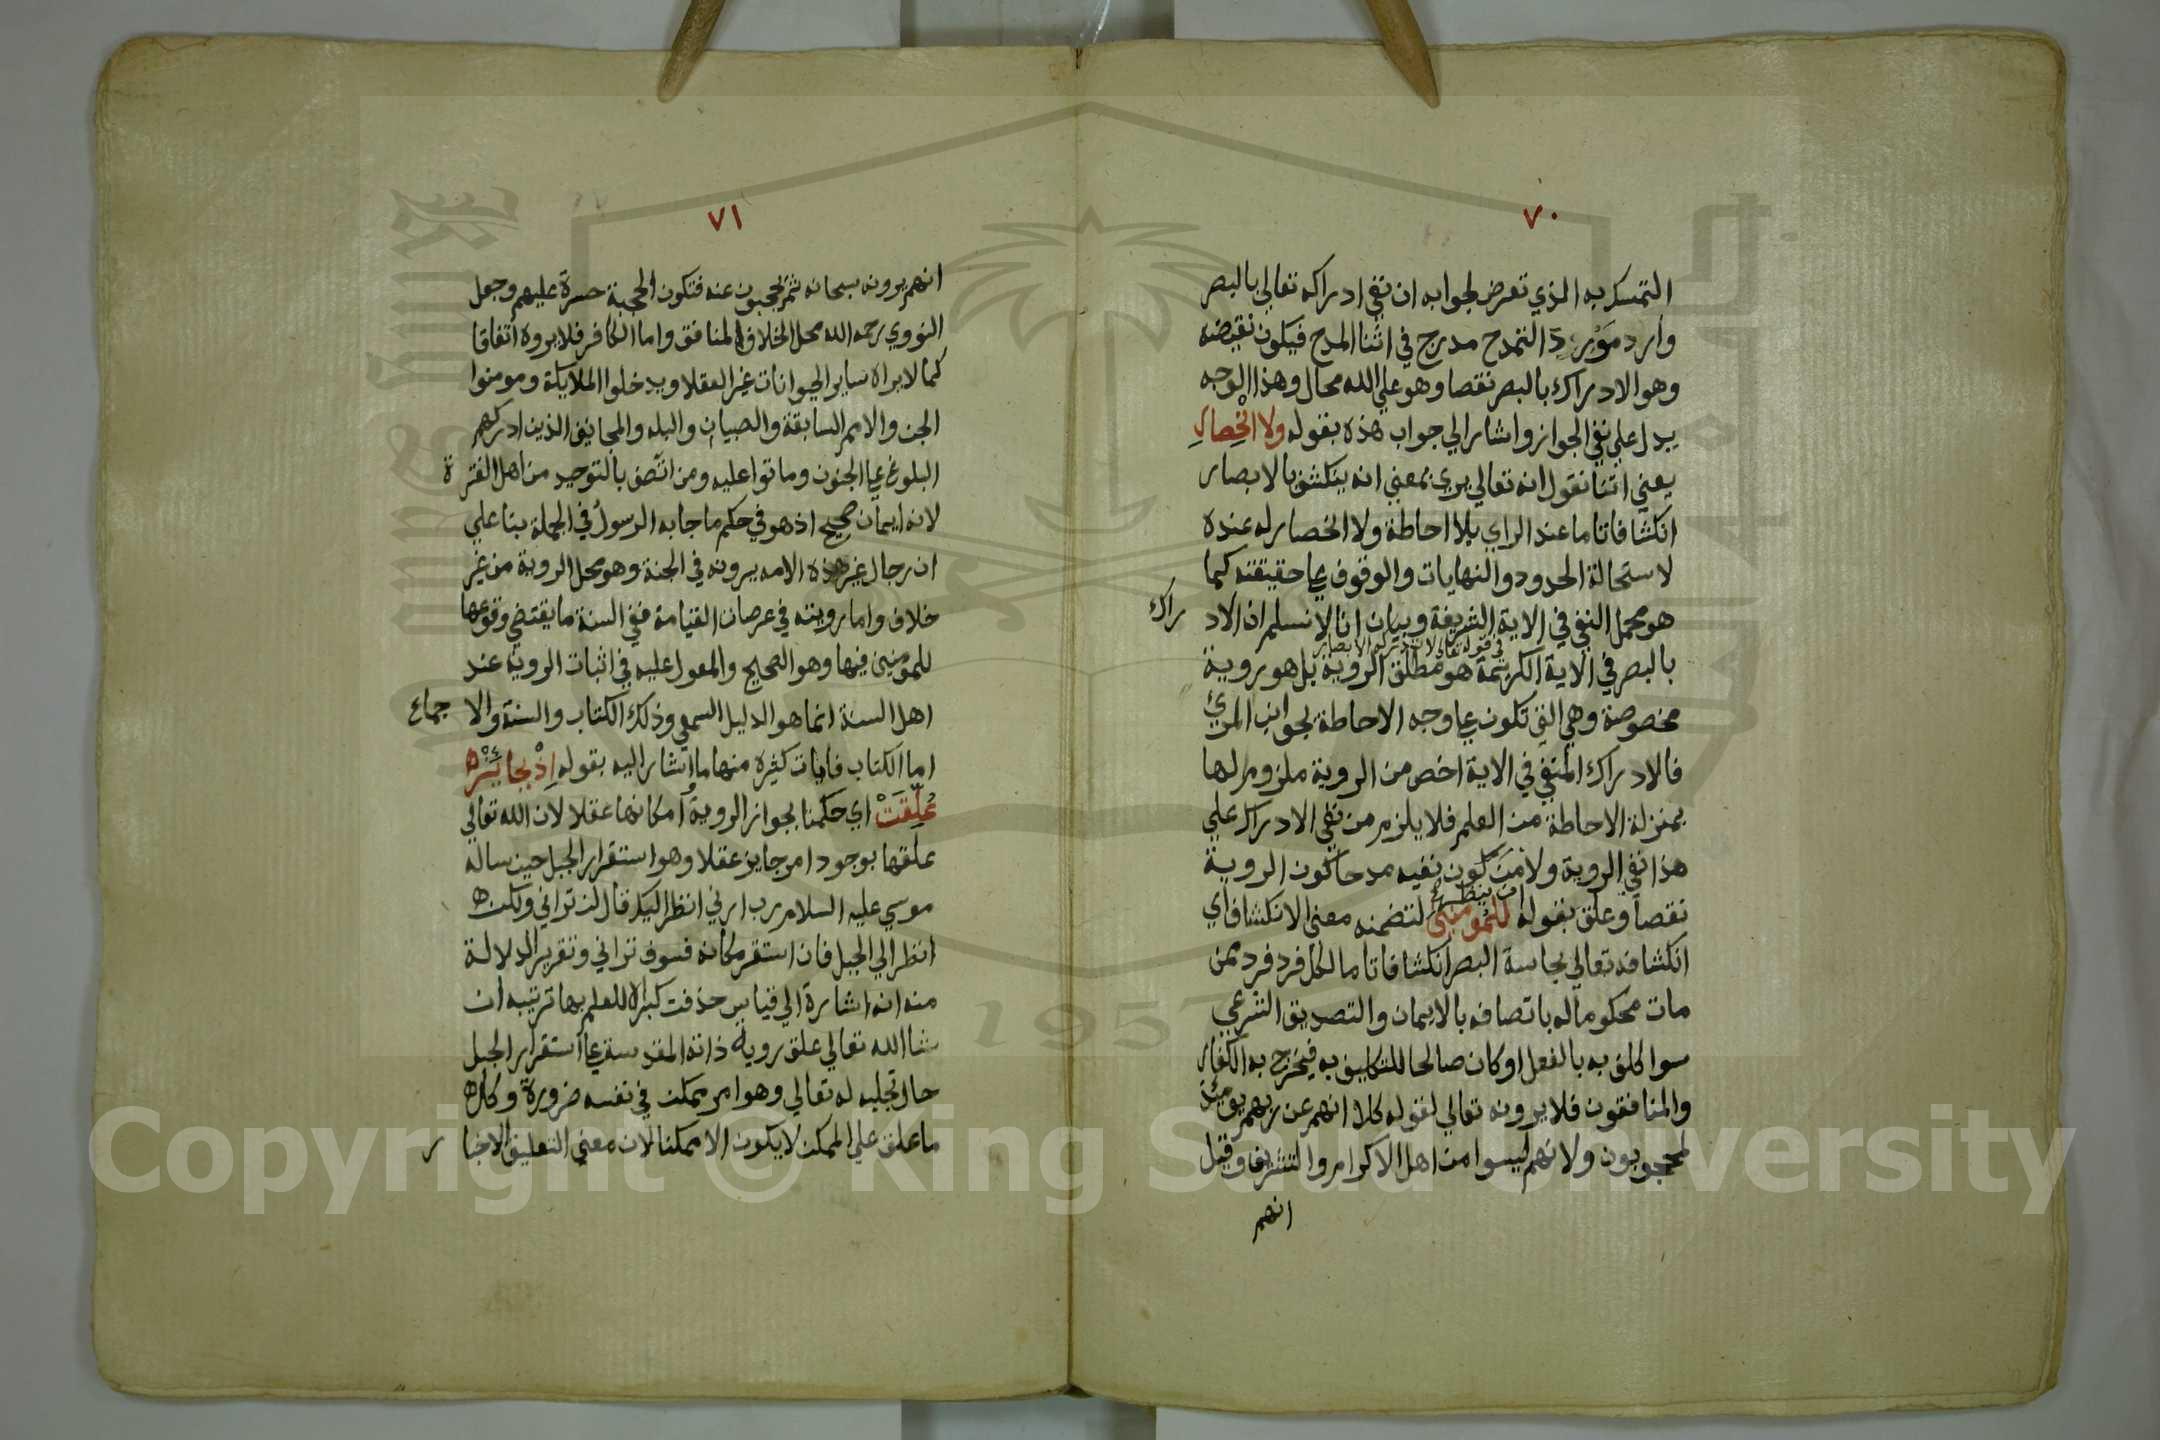 ٧٠
التمسك به الذي تعرض لجوابه ان نفي ادراكه تعالي بالبصر
وارد مَوْرِدَ التمدح مدرج في اثنا المدح فيكون نقيضه
وهو الادراك بالبصر نقصا وهو علي الله محال وهذا الوجه
يدل علي نفي الجواز واشار الي جواب هذه بقوله ولا انْحِصارِ
يعني اننا نقول انه تعالي يري بمعني انه ينكشف بالابصار
انكشافا تاما عند الراي بلا احاطة ولا انحصار له عنده
لاستحالة الحدود والنهايات والوقوف علي حقيقته كما
هو محمل النفي في الاية الشريفة وبيان انا لا نسلم ان الاد راك
في قوله تعالي لا تدركه الابصار
بالبصر في الاية الكريمة هو مطلق الروية بل هو روية
مخصوصة وهي التي تكون علي وجه الاحاطة بجوانب المرئي
فالادراك المنفي في الاية اخص من الروية ملزوم لها
بمنزلة الاحاطة من العلم فلا يلزم من نفي الادراك علي
هذا نفي الروية ولا من كون نفيه مدحا كون الروية
نقصا وعلق بقوله ان ينظر للمُومنين لتضمنه معني الانكشاف اي
انكشافه تعالي بحاسة البصر انكشافا تاما لكل فرد فرد ممن
مات محكوما له باتصافه بالايمان والتصديق الشرعي
سوا كلف به بالفعل او كان صالحا للتكليف به فيخرج به الكفار
والمنافقون فلا يرونه تعالي لقوله كلا انهم عن ربهم يومئذ
لمحجوبون ولانهم ليسوا من اهل الاكرام والتشريف وقيل
انهم
٧١
انهم يرونه سبحانه ثم يحجبون عنه فتكون الحجبة حسرة عليهم وجعل
النووي رحمه الله محل الخلاف المنافق واما الكافر فلا يروه اتفاقا
كما لا يراه ساير الحيوانات غير العقلا ويدخلوا الملايكة ومومنوا
الجن والامم السابقة والصبيان والبله والمجانين الذين ادركهم
البلوغ علي الجنون وماتوا عليه ومن اتصف بالتوحيد من اهل الفترة
لانه ايمان صحيح اذ هو في حكم ما جا به الرسول في الجملة بنا علي
ان رجال غير هذه الامه يرونه في الجنة وهو محل الروية من غير
خلاف واما رويته في عرصات القيامة ففي السنة ما يقتضي وقوعها
للمؤمنين فيها وهو الصحيح والمعول عليه في اثبات الروية عند
اهل السنة انما هو الدليل السمعي وذلك الكتاب والسنة والا جماع
اما الكتاب فايات كثيرة منها ما اشار اليه بقوله اِذْ بجائزْ
عُلِّقَتْ اي حكمنا بجواز الروية وامكانها عقلا لان الله تعالي
علقها بوجود امر جايز عقلا وهو استقرار الجبل حين ساله
موسي عليه السلام رب ارني انظر اليك قال لن تراني ولكن
انظر الي الجبل فان استقر مكانه فسوف تراني وتقرير الدلالة
منه انه اشارة الي قياس حذفت كبراه للعلم بها ترتيبه ان
شا الله تعالي علق روية ذاته المقدسة علي استقرار الجبل
حال تجليه له تعالي وهو امر ممكن في نفسه ضرورة وكل
ما علق علي الممكن لا يكون الا ممكنا لان معني التعليق الاخبا ر
Copyright © King Saud University
1957